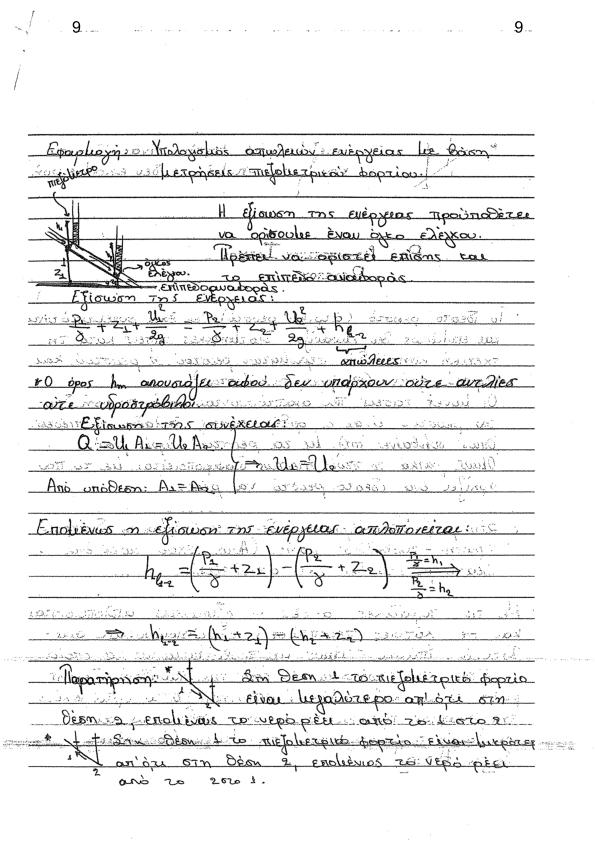 9 9
Εφαρμογή: Υπολογισμός απωλειών ενέργειας με βάση
μετρήσεις πιεζομετρικού φορτίου.
πιεζόμετρο
Η εξίσωση της ενέργειας προϋποθέτει
να ορίσουμε έναν όγκο ελέγχου.
Πρέπει να οριστεί επίσης και
το επίπεδο αναφοράς.
h₁
1
Z₁
2
όγκος
ελέγχου.
επίπεδο αναφοράς.
Εξίσωση της ενέργειας:
P₁/γ + Z₁ + U₁²/2g = P₂/γ + Z₂ + U₂²/2g + hₗ₁₋₂
απώλειες
*Ο όρος hm απουσιάζει αφού δεν υπάρχουν ούτε αντλίες
ούτε υδροστρόβιλοι
Εξίσωση της συνέχειας:
Q = U₁ A₁ = U₂ A₂
⇒ U₁ = U₂
Από υπόθεση: A₁ = A₂
Επομένως η εξίσωση της ενέργειας απλοποιείται:
hₗ₁₋₂ = (P₁/γ + Z₁) − (P₂/γ + Z₂) P₁/γ = h₁ P₂/γ = h₂
⇒ hₗ₁₋₂ = (h₁ + Z₁) − (h₂ + Z₂)
Παρατήρηση: * 1 2 Στη θέση 1 το πιεζομετρικό φορτίο
είναι μεγαλύτερο απ'ότι στη
θέση 2, επομένως το νερό ρέει από το 1 στο 2.
* 1 2 Στη θέση 1 το πιεζομετρικό φορτίο είναι μικρότερ
απ'ότι στη θέση 2, επομένως το νερό ρέει
από το 2 στο 1.